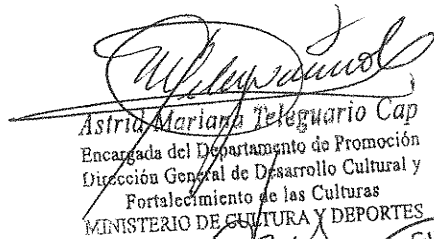 Astrid Mariana Teleguario Cap
Encargada del Departamento de Promoción
Dirección General de Desarrollo Cultural y
Fortalecimiento de las Culturas
MINISTERIO DE CULTURA Y DEPORTES